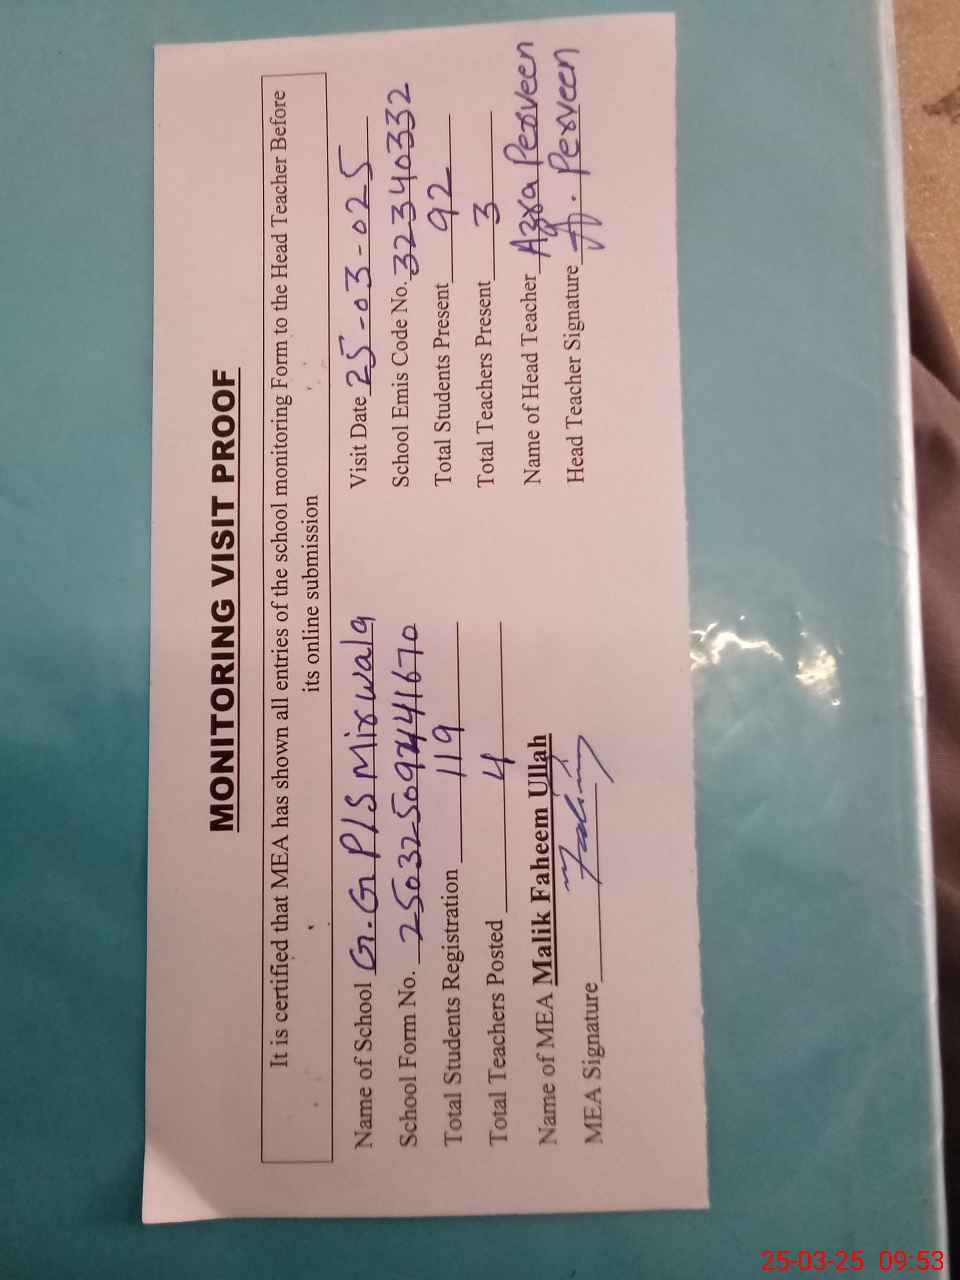 MONITORING VISIT PROOF
It is certified that MEA has shown all entries of the school monitoring Form to the Head Teacher Before
its online submission
Name of School G.G P/S Mirwala Visit Date 25-03-025
School Form No. School Emis Code No. 32340332
Total Students Registration 119 Total Students Present 92
Total Teachers Posted 4 Total Teachers Present 3
Name of MEA Malik Faheem Ullah Name of Head Teacher Azra Perveen
MEA Signature Faheem Head Teacher Signature A. Perveen
25-03-25 09:53